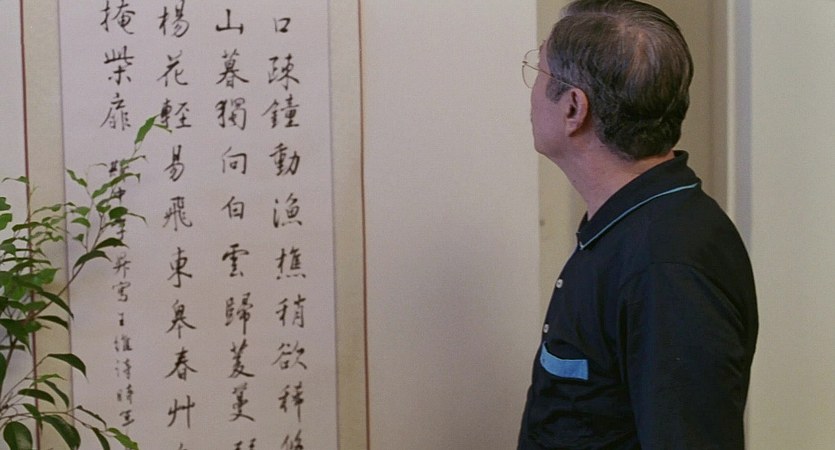 口疎鐘動漁樵稍欲稀
山暮獨向白雲歸菱蔓
楊花輕易飛東皋春艸
掩柴扉
寫王維詩時年